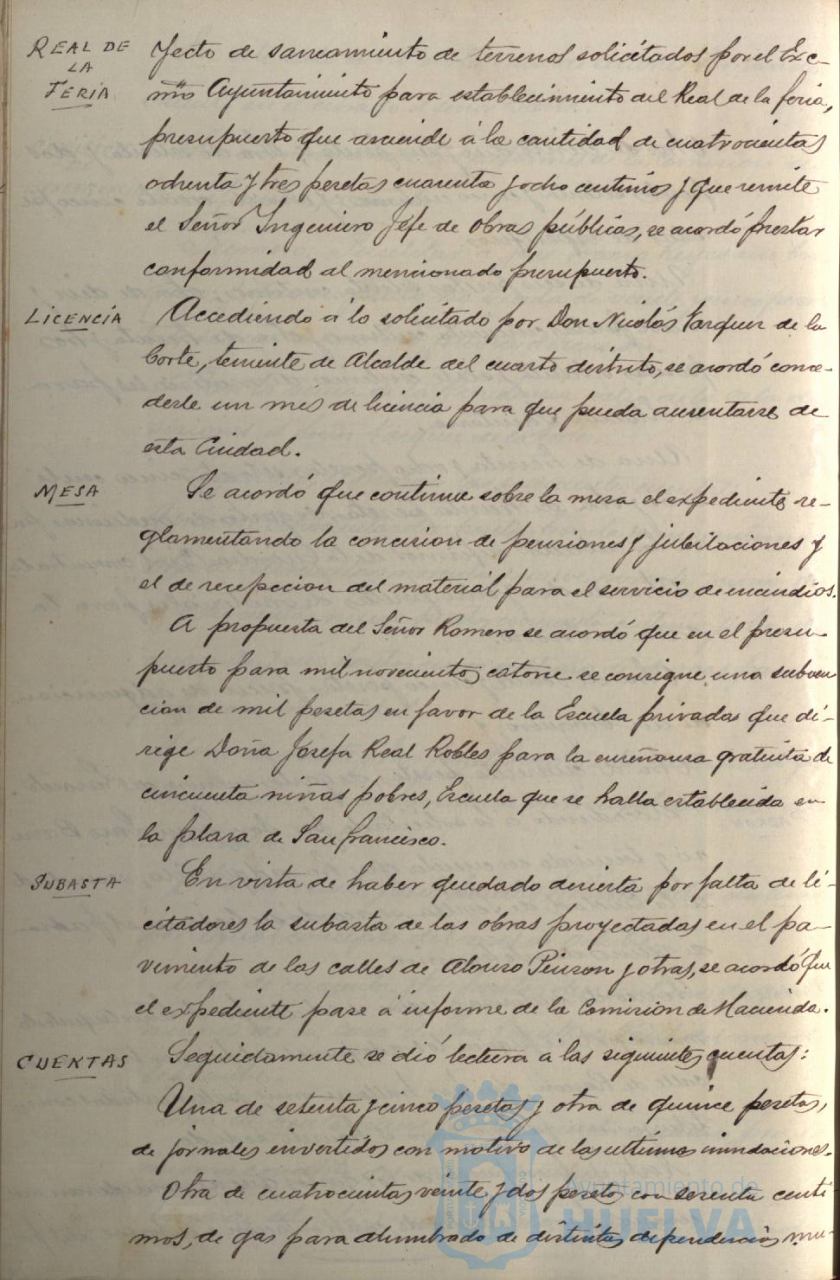 REAL DE
LA
FERIA
yecto de saneamiento de terrenos solicitados por el Exc-
mo Ayuntamiento para establecimiento del Real de la feria,
presupuesto que asciende á la cantidad de cuatrocientas
ochenta y tres pesetas cuarenta y ocho centimos y que remite
el Señor Ingeniero Jefe de Obras públicas, se acordó prestar
conformidad al mencionado presupuesto.
LICENCIA
Accediendo á lo solicitado por Don Nicolás Vazquez de la
Corte, teniente de Alcalde del cuarto distrito, se acordó conce-
derle un mes de licencia para que pueda ausentarse de
esta Ciudad.
MESA
Se acordó que continue sobre la mesa el expediente re-
glamentando la concesion de pensiones y jubilaciones y
el de recepcion del material para el servicio de incendios.
A propuesta del Señor Romero se acordó que en el presu-
puesto para mil novecientos catorce se consigne una subven
cion de mil pesetas en favor de la Escuela privada que di-
rige Doña Josefa Real Robles para la enseñanza gratuita de
cincuenta niñas pobres, Escuela que se halla establecida en
la plaza de San francisco.
SUBASTA
En vista de haber quedado desierta por falta de li-
citadores la subasta de las obras proyectadas en el pa-
vimento de las calles de Alonso Pinzon y otras, se acordó que
el expediente pase á informe de la Comision de Hacienda.
CUENTAS
Seguidamente se dió lectura á las siguientes cuentas:
Una de setenta y cinco pesetas y otra de quince pesetas,
de jornales invertidos con motivo de las ultimas inundaciones.
Otra de cuatrocientas veinte y dos pesetas con sesenta centi
mos, de gas para alumbrado de distintas dependencias mu-
Ayuntamiento de
HUELVA